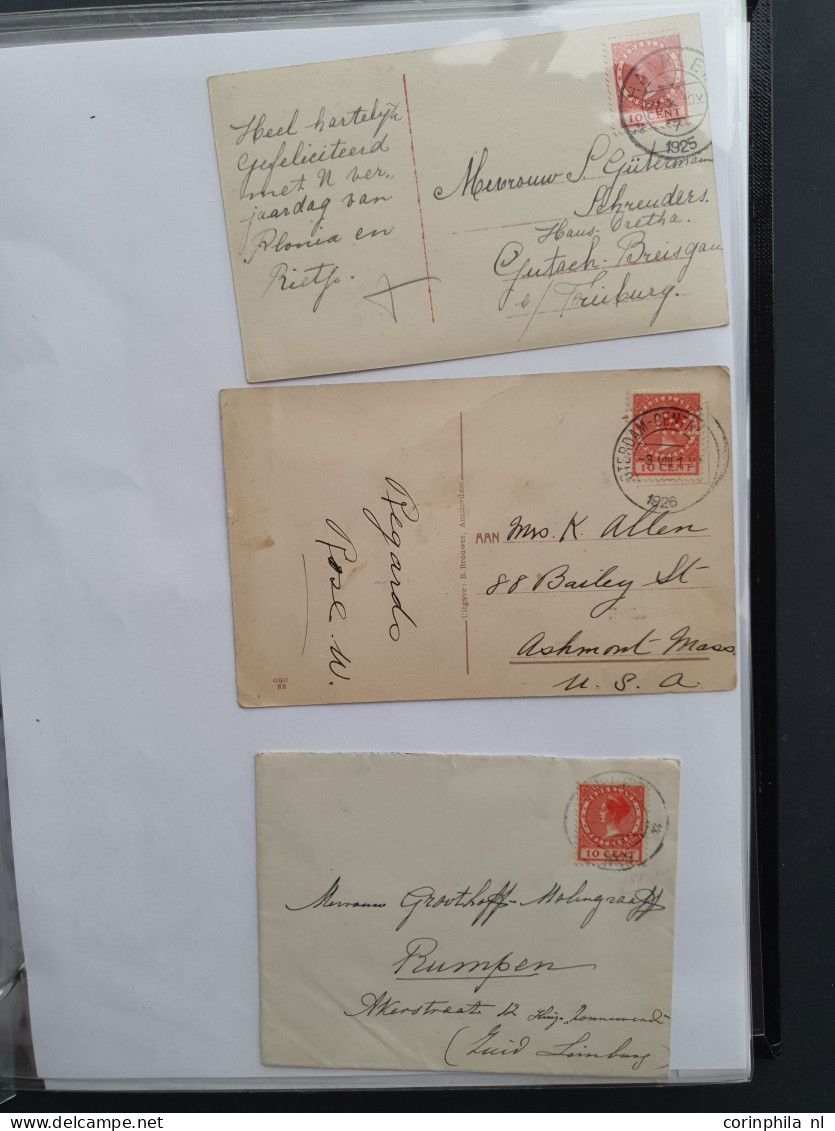 Heel hartelijk
gefeliciteerd
met U ver-
jaardag van
en
Rietje.
NEDERLAND
10 CENT
1925
Mevrouw S. Gütermann
Schreuders.
Haus Oretha.
Gutach-Breisgau
b/ Freiburg.
NEDERLAND
10 CENT
STERDAM-CEN
1926
Regards
Rose W.
Uitgave: B. Brouwer, Amsterdam
AAN Mrs. K. Allen
88 Bailey St
Ashmont Mass.
U. S. A.
NEDERLAND
10 CENT
Mevrouw Groothoff-Molengraaff
Rumpen
Akerstraat 12 Huize "Zonnewend"
(Zuid Limburg)
Copyright corinphila nl